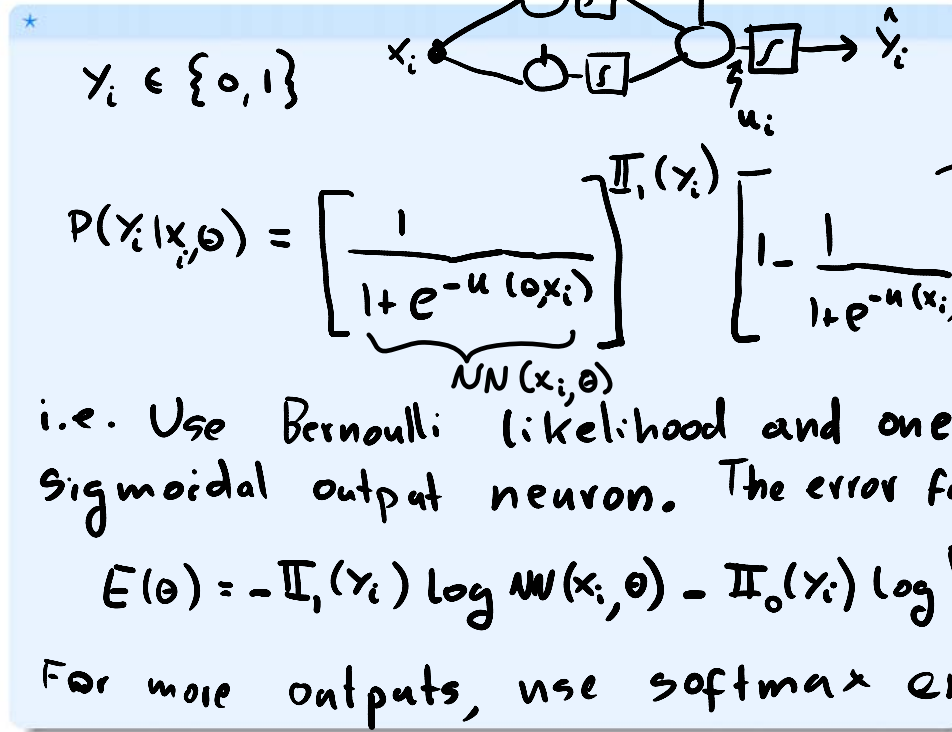 *
x_i ŷ_i
y_i ∈ {0,1}
u_i
P(y_i|x_i,θ) = [1/(1+e^{-u(θ,x_i)})]^{𝕀_1(y_i)} [1 - 1/(1+e^{-u(x_i,
NN(x_i,θ)
i.e. Use Bernoulli likelihood and one
sigmoidal output neuron. The error
E(θ) = -𝕀_1(y_i) log NN(x_i,θ) - 𝕀_0(y_i) log
For more outputs, use softmax